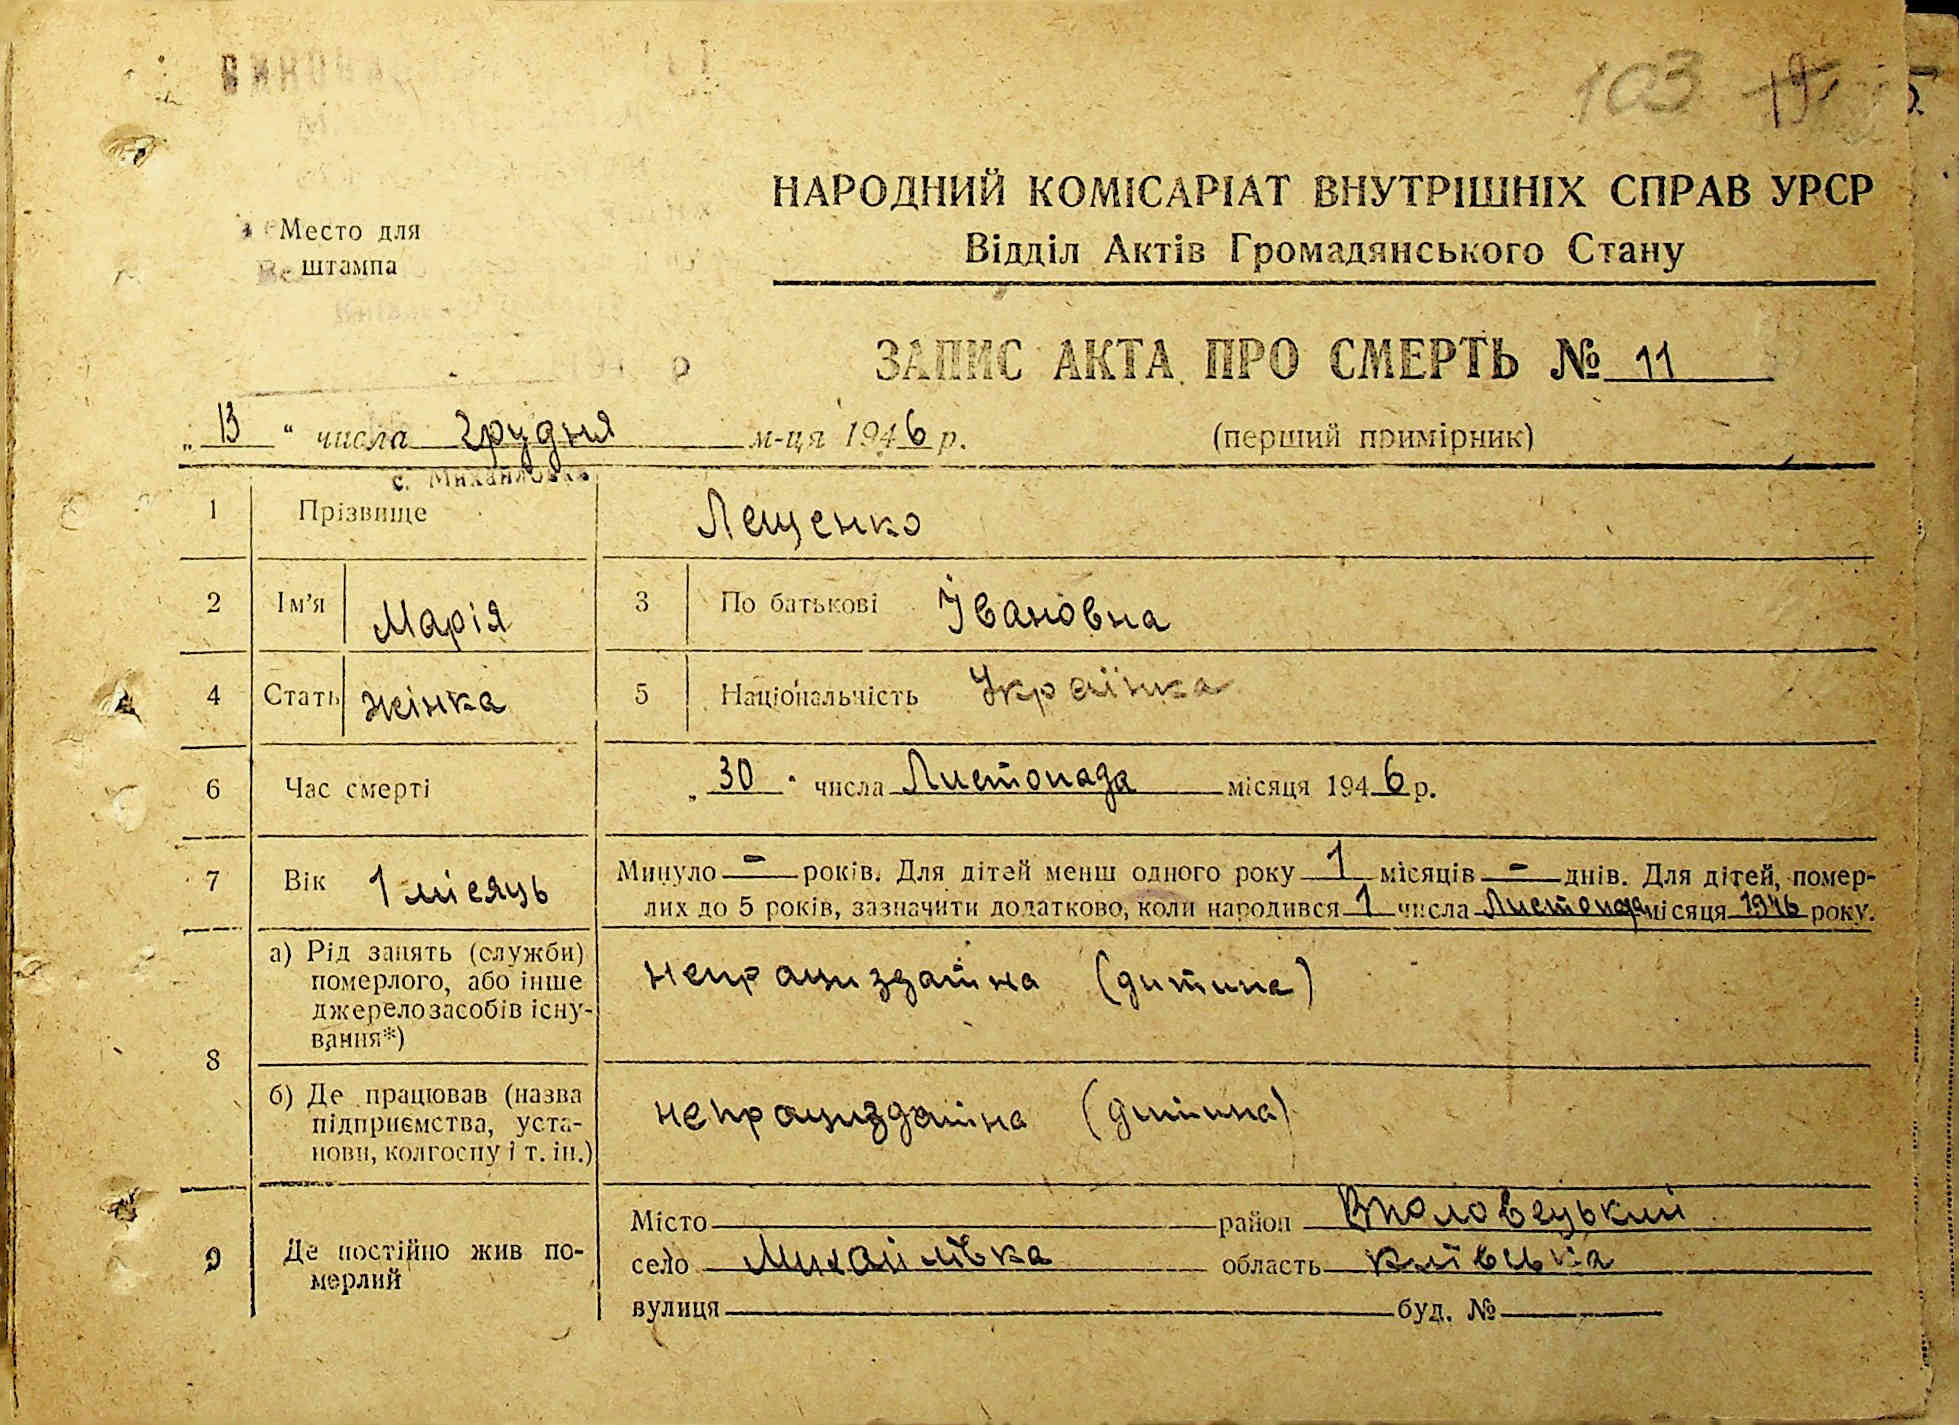 103 19
НАРОДНИЙ КОМІСАРІАТ ВНУТРІШНІХ СПРАВ УРСР
Место для
штампа
Відділ Актів Громадянського Стану
ЗАПИС АКТА ПРО СМЕРТЬ № 11
„ 13 “ числа грудня м-ця 1946 р.
(перший примірник)
с. Михайловка
1 Прізвище Лещенко
2 Ім’я Марія 3 По батькові Івановна
4 Стать жінка 5 Національність Українка
6 Час смерті „ 30 " числа Листопада місяця 1946 р.
7 Вік 1 місяць Минуло - років. Для дітей менш одного року 1 місяців - днів. Для дітей, помер-
лих до 5 років, зазначити додатково, коли народився 1 числа Листопада місяця 1946 року.
8
а) Рід занять (служби)
померлого, або інше
джерело засобів існу-
вання*)
непрациздатна (дитина)
б) Де працював (назва
підприємства, уста-
нови, колгоспу і т. ін.)
непрацизданна (дитина)
9 Де постійно жив по-
мерлий
Місто район
село Михайлівка область київська
вулиця буд. №